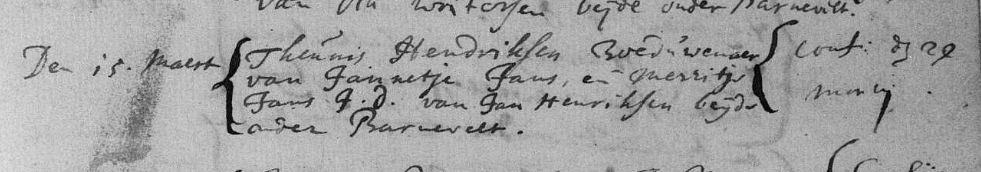 van writersen beyde onder Barnevelt.
Den 15. Maert Theunis Hendriksen Weduwenaer Conf: d 29
van Jannetje Jans, en Merritje
Jans J.d. van Jan Henriksen beyde
onder Barnevelt.